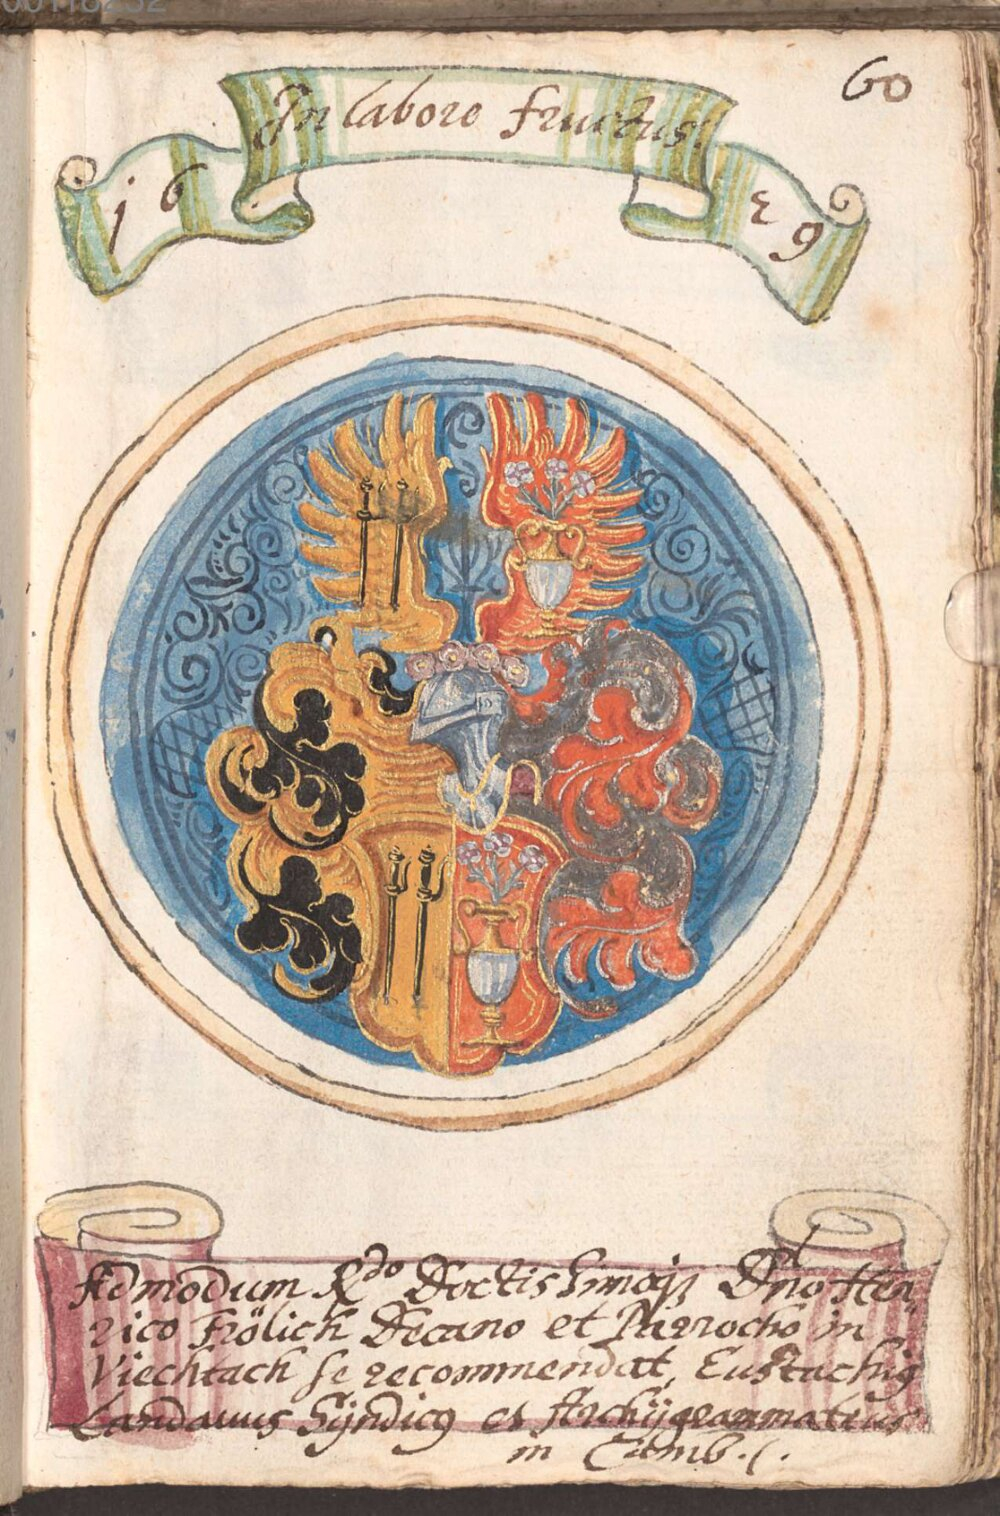 60
In labore fructus.
16 29
Admodum Rdo Doctissimoq3 Dno Hen„
rico Frölich Decano et Parrocho in
Viechtach se recommendat, Eustachig
Landauus Syndicg et Archÿgrammateus
in Camb.